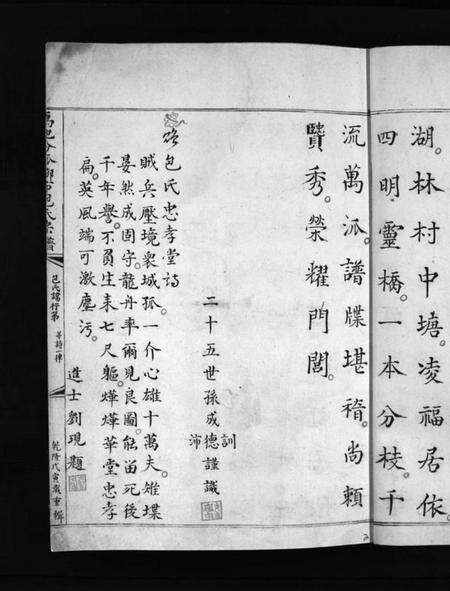 湖。林村中塘。凌福居依
四明靈橋。一本分枝。千
流萬派。譜牒堪稽。尚賴
賢秀。榮耀門閭。
二十五世孫成德謹識
訓
沛
包氏忠孝堂詩
賊兵壓境衆城孤。一介心雄十萬夫。雉堞
晏然成固守。龍丹率爾見良圖。能留死後
千年譽。不負生来七尺軀。燁燁華堂忠孝
扁。英風端可激塵污。
進士劉現題
包氏宗譜
包氏諱行第
乾隆戊寅歲重輯